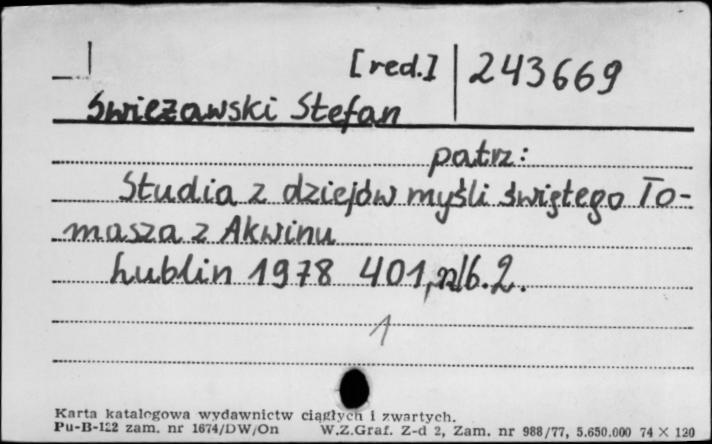 [red.] 243669
Świeżawski Stefan
patrz:
Studia z dziejów myśli świętego To-
masza z Akwinu
Lublin 1978 401, nlb. 2.
1
Karta katalogowa wydawnictw ciągłych i zwartych.
Pu-B-122 zam. nr 1674/DW/On W.Z.Graf. Z-d 2, Zam. nr 988/77, 5.650.000 74 × 120